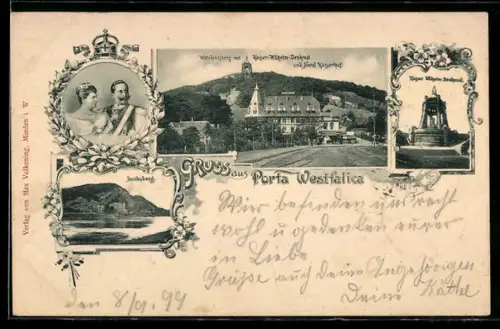 Wittekindsberg mit Kaiser-Wilhelm-Denkmal
und Hotel Kaiserhof.
Kaiser Wilhelm-Denkmal.
Jacobsberg.
Gruss aus Porta Westfalica
Verlag von Max Volkening, Minden i. W
Wir befinden uns recht
wohl u gedenken eurer
in Liebe
Grüße auch deine Angehörigen
Deine Käthe
den 8/9. 99